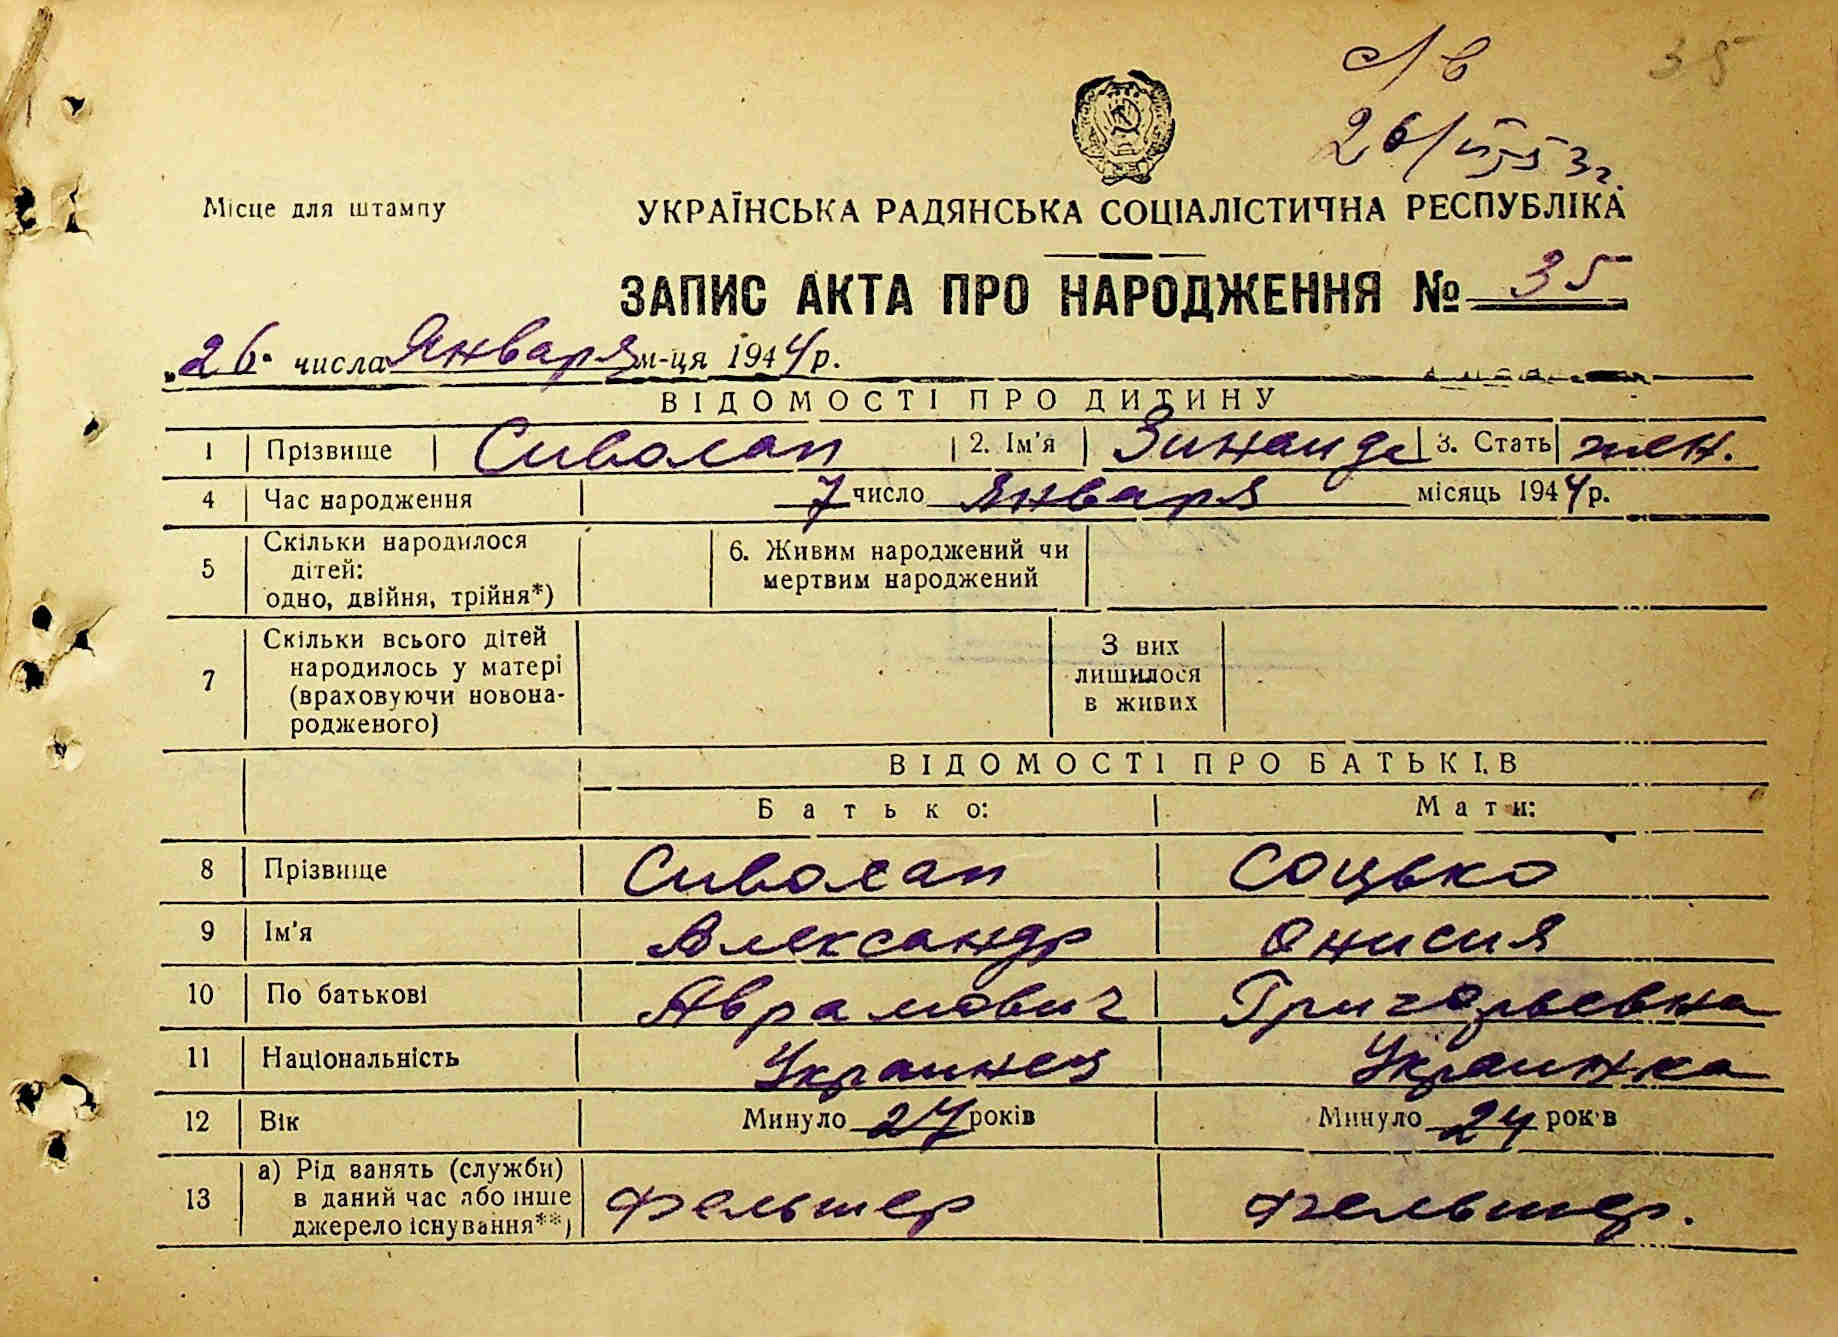 с/в
35
26/VI-53 г.
Місце для штампу
УКРАЇНСЬКА РАДЯНСЬКА СОЦІАЛІСТИЧНА РЕСПУБЛІКА
ЗАПИС АКТА ПРО НАРОДЖЕННЯ № 35
„26" числа Января м-ця 1944 р.
ВІДОМОСТІ ПРО ДИТИНУ
1 Прізвище Сиволап 2. Ім'я Зинаида 3. Стать жен.
4 Час народження 7 число Января місяць 1944 р.
5 Скільки народилося 6. Живим народжений чи
дітей: мертвим народжений
одно, двійня, трійня*)
7 Скільки всього дітей З них
народилось у матері лишилося
(враховуючи новона- в живих
родженого)
ВІДОМОСТІ ПРО БАТЬКІВ
Батько: Мати:
8 Прізвище Сиволап Соцько
9 Ім'я Александр Онисия
10 По батькові Аврамович Григорьевна
11 Національність Украинец Украинка
12 Вік Минуло 27 років Минуло 24 років
13 а) Рід занять (служби) Фельшер Фельшер.
в даний час або інше
джерело існування**)